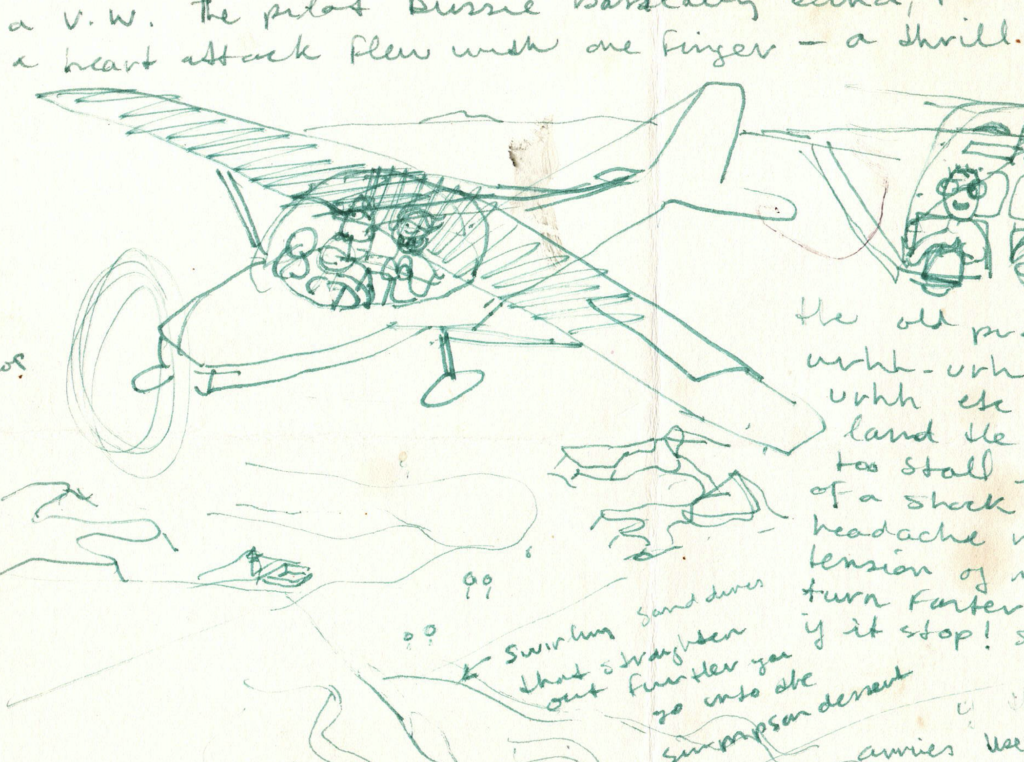 a V.W. The pilot
a heart attack flew with one finger — a thrill.
or
the old
urhh - urh
urhh etc
land the
too stall
of a shock
headache
tension of
turn faster
if it stop! s
swirling sand dunes
that straighten
out further you
go into the
simppson dessert